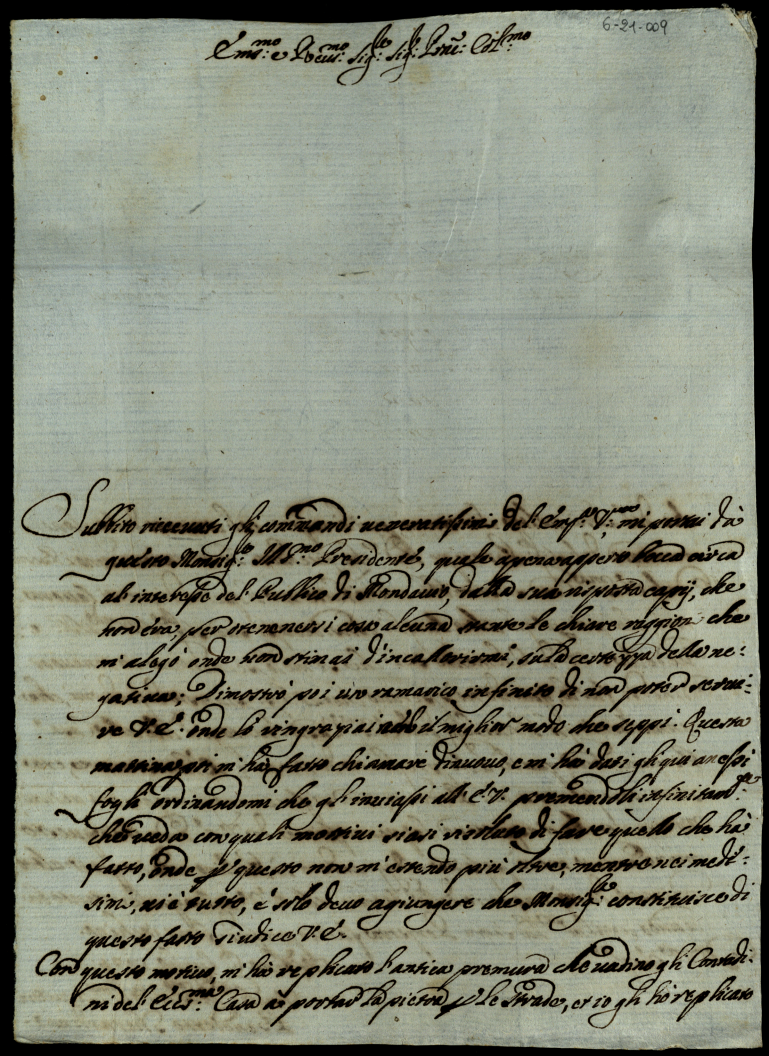 6-21-009
Em:mo e Rever:mo Sig:re Sig:re Prne: Col:mo
Subbito riceuuti gli commandi veneratissimi del Em:za V:, mi portai dà
questo Monsig:re Ill:mo Presidente, quale apena apperto bocca circa
al interesse del Publico di Mondauio, dalla sua risposta capij, che
non era per ottenersi cosa alcuna stante le chiare raggioni che
m'alegò onde non stimai d'incallorirmi, su la certezza della ne:
gatiua; Dimostrò poi un ramarico infinito di non poter serui:
re V.E. onde lo ringraziai nel il miglior modo che seppi. Questa
mattina poi m'hà fatto chiamare dinuouo, e mi hà dati gli qui anessi
fogli ordinandomi che gl'inuiassi all E.V. premendoli infinitam:te
che ueda con quali mottiui siasi risoluto di fare quello che hà
fatto, onde p questo non m'estendo più oltre, mentre nei mede:
simi, ui è tutto, e solo deuo agiungere che Monsig:re constituisce di
questo fatto Giudice V.E.
Con questo motiuo, m'hà replicato l'antica premura che uadino gli Contadi:
ni del Ecc:ma Casa à portar la pietra p le strade, et io gli hò replicato